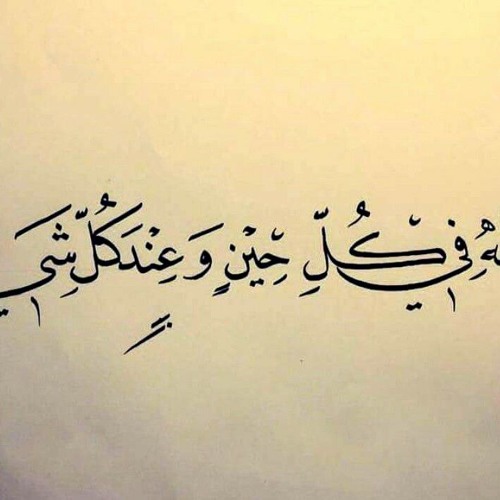 ـهُ فِي كُلِّ حِيْنٍ وَ عِنْدَ كُلِّ شَي